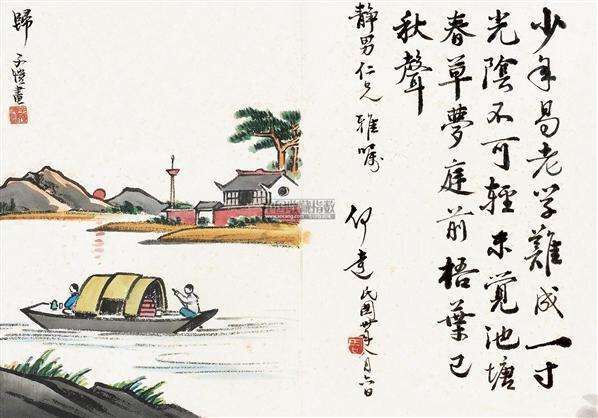 少年易老学難成一寸
光陰不可輕未覺池塘
春草夢庭前梧葉已
秋聲
靜男仁兄雅嘱
民國
八月六日
歸
子愷畫